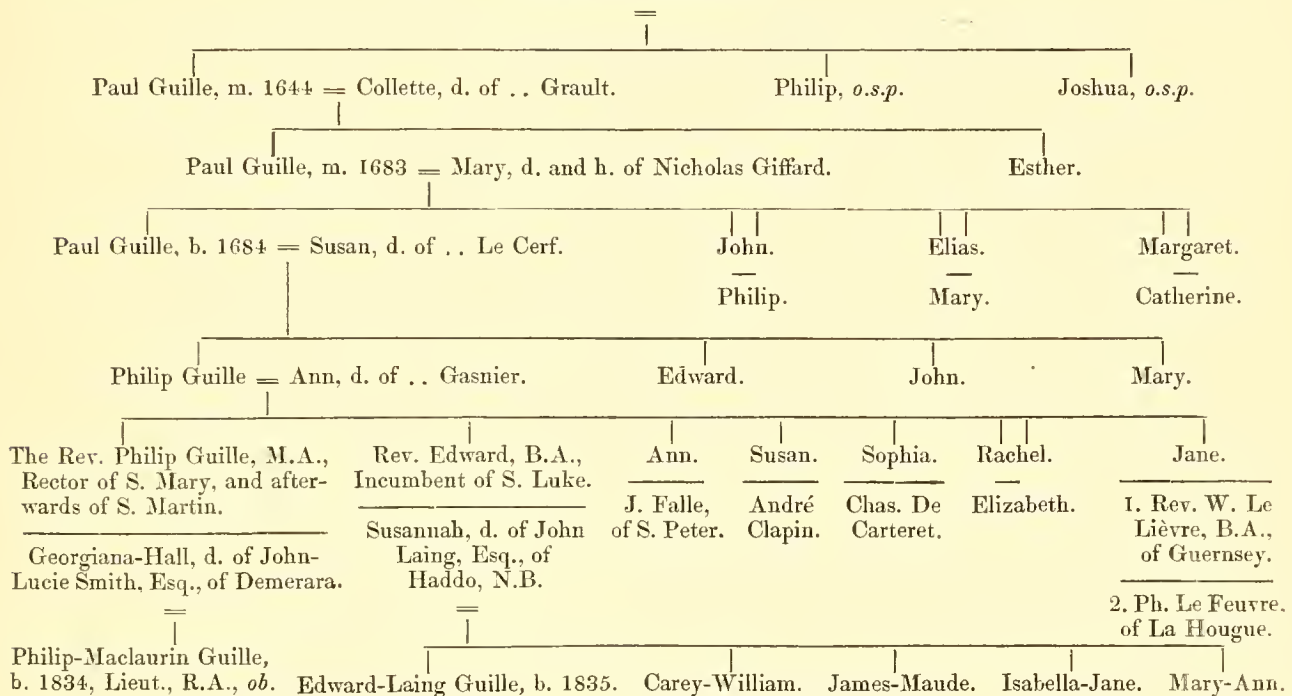 Paul Guille, m. 1644 = Collette, d. of .. Grault. Philip, o.s.p. Joshua, o.s.p.
Paul Guille, m. 1683 = Mary, d. and h. of Nicholas Giffard. Esther.
Paul Guille, b. 1684 = Susan, d. of .. Le Cerf. John. Elias. Margaret.
Philip. Mary. Catherine.
Philip Guille = Ann, d. of .. Gasnier. Edward. John. Mary.
The Rev. Philip Guille, M.A.,
Rector of S. Mary, and after-
wards of S. Martin.
Georgiana-Hall, d. of John-
Lucie Smith, Esq., of Demerara.
Rev. Edward, B.A.,
Incumbent of S. Luke.
Susannah, d. of John
Laing, Esq., of
Haddo, N.B.
Ann.
J. Falle,
of S. Peter.
Susan.
André
Clapin.
Sophia.
Chas. De
Carteret.
Rachel.
Elizabeth.
Jane.
1. Rev. W. Le
Lièvre, B.A.,
of Guernsey.
2. Ph. Le Feuvre,
of La Hougue.
Philip-Maclaurin Guille,
b. 1834, Lieut., R.A., ob.
Edward-Laing Guille, b. 1835. Carey-William. James-Maude. Isabella-Jane. Mary-Ann.